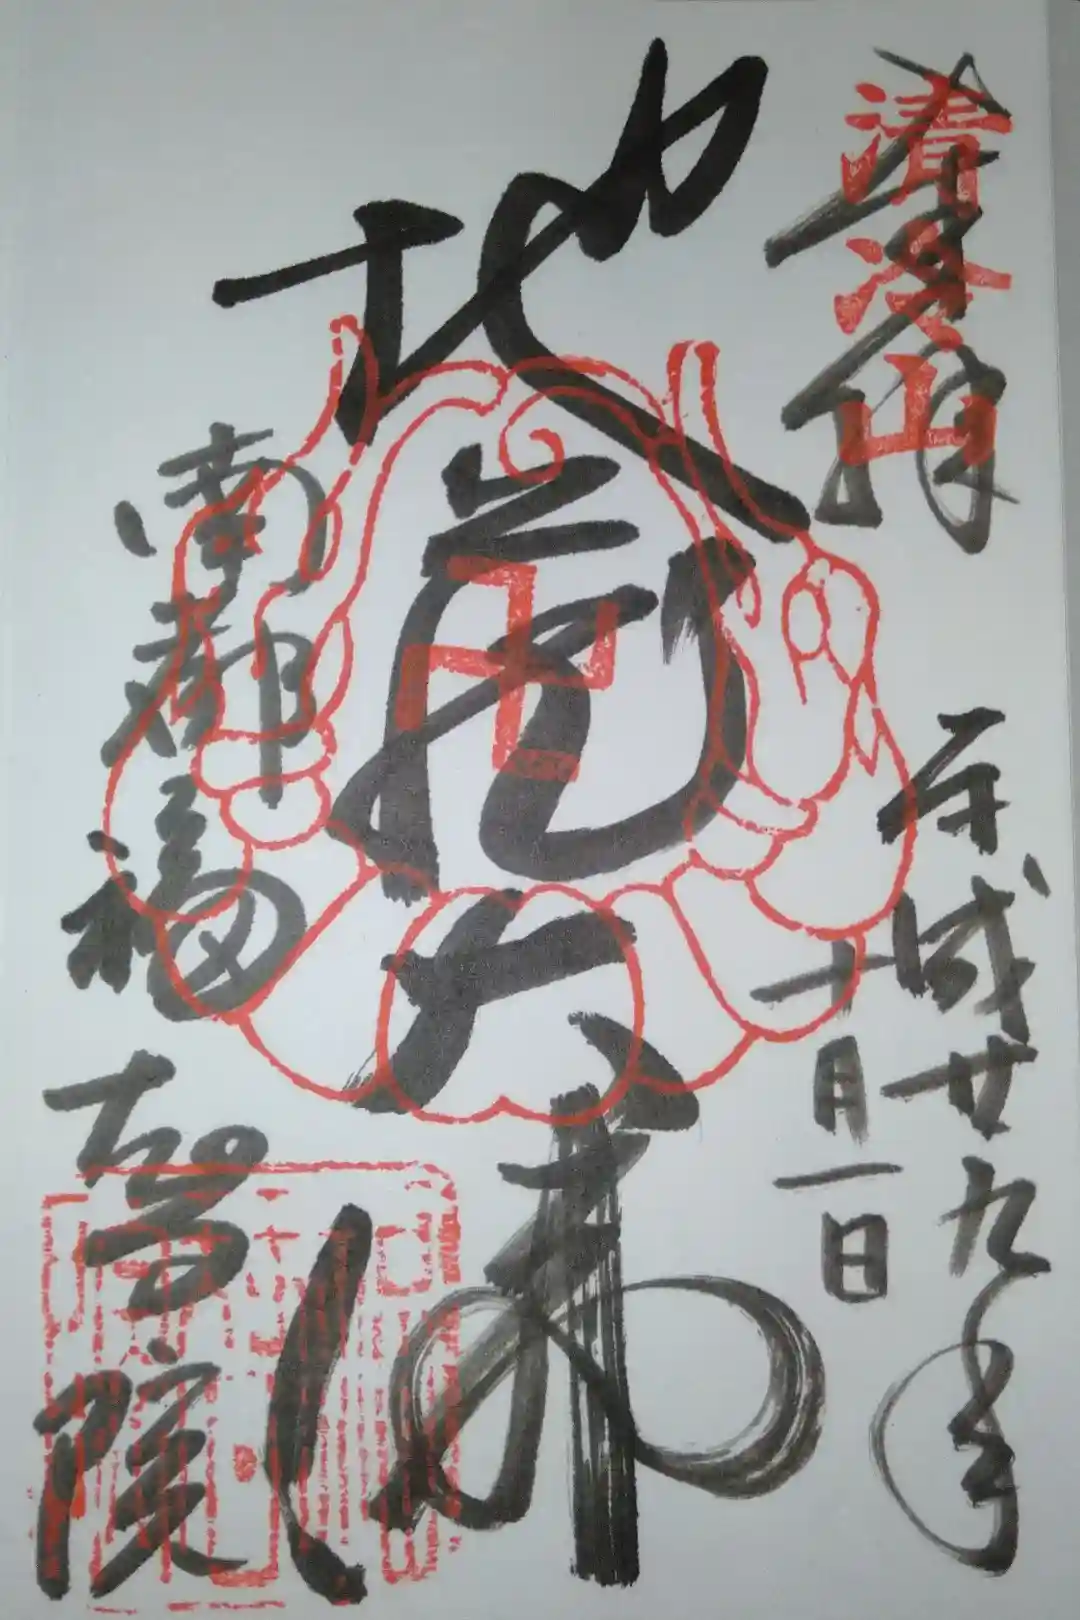 奉拝
清冷山
平成廿九年
十月一日
地蔵大佛
南都福智院